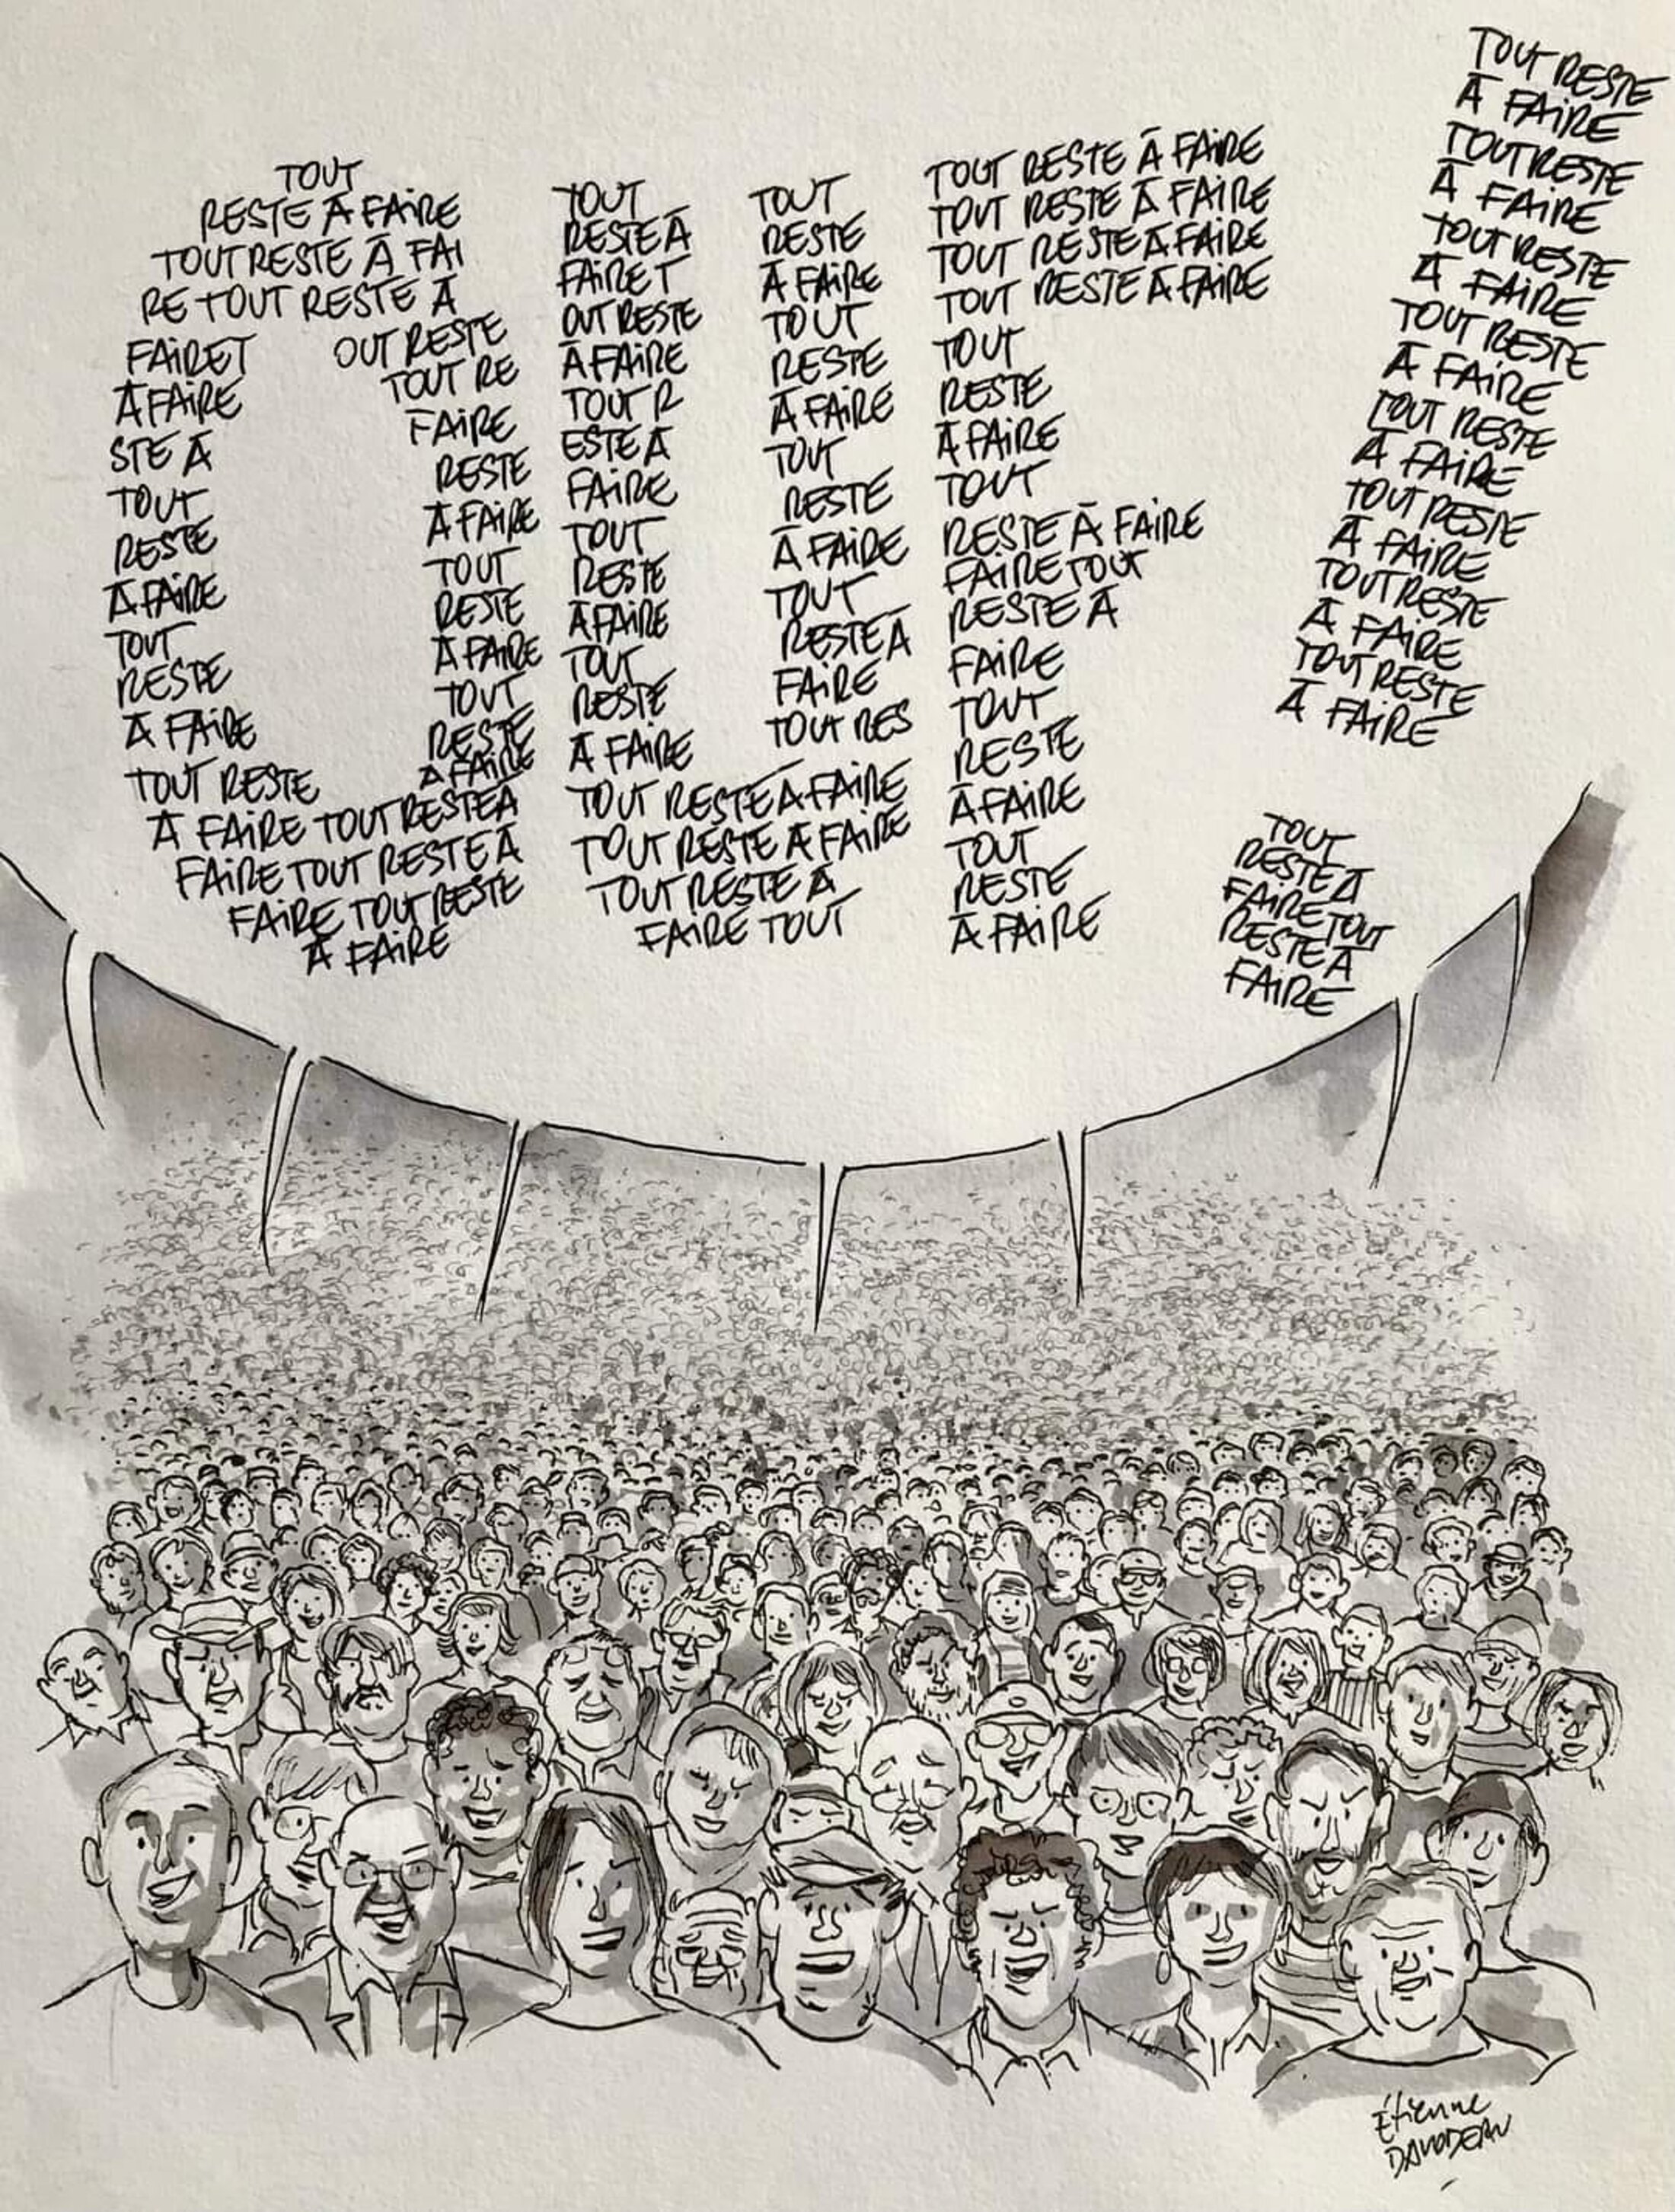 TOUT
RESTE À FAIRE
TOUT RESTE À FAI
RE TOUT RESTE À
FAIRE T OUT RESTE
À FAIRE TOUT RE
STE À FAIRE
TOUT RESTE
RESTE À FAIRE
À FAIRE TOUT
TOUT RESTE
RESTE À FAIRE
À FAIRE TOUT
RESTE
À FAIRE
TOUT RESTE
À FAIRE TOUT RESTE À
FAIRE TOUT RESTE À
FAIRE TOUT RESTE
À FAIRE
TOUT TOUT
RESTE À RESTE
FAIRE T À FAIRE
OUT RESTE TOUT
À FAIRE RESTE
TOUT R À FAIRE
ESTE À TOUT
FAIRE RESTE
TOUT À FAIRE
RESTE TOUT
À FAIRE RESTE À
TOUT FAIRE
RESTE TOUT RES
À FAIRE
TOUT RESTE À FAIRE
TOUT RESTE À FAIRE
TOUT RESTE À
FAIRE TOUT
TOUT RESTE À FAIRE
TOUT RESTE À FAIRE
TOUT RESTE À FAIRE
TOUT RESTE À FAIRE
TOUT
RESTE
À FAIRE
TOUT
RESTE À FAIRE
FAIRE TOUT
RESTE À
FAIRE
TOUT
RESTE
À FAIRE
TOUT
RESTE
À FAIRE
TOUT RESTE
À FAIRE
TOUT RESTE
À FAIRE
TOUT RESTE
À FAIRE
TOUT RESTE
À FAIRE
TOUT RESTE
À FAIRE
TOUT RESTE
À FAIRE
TOUT RESTE
À FAIRE
TOUT RESTE
À FAIRE
TOUT
RESTE À
FAIRE TOUT
RESTE À
FAIRE
Étienne
DAVODEAU